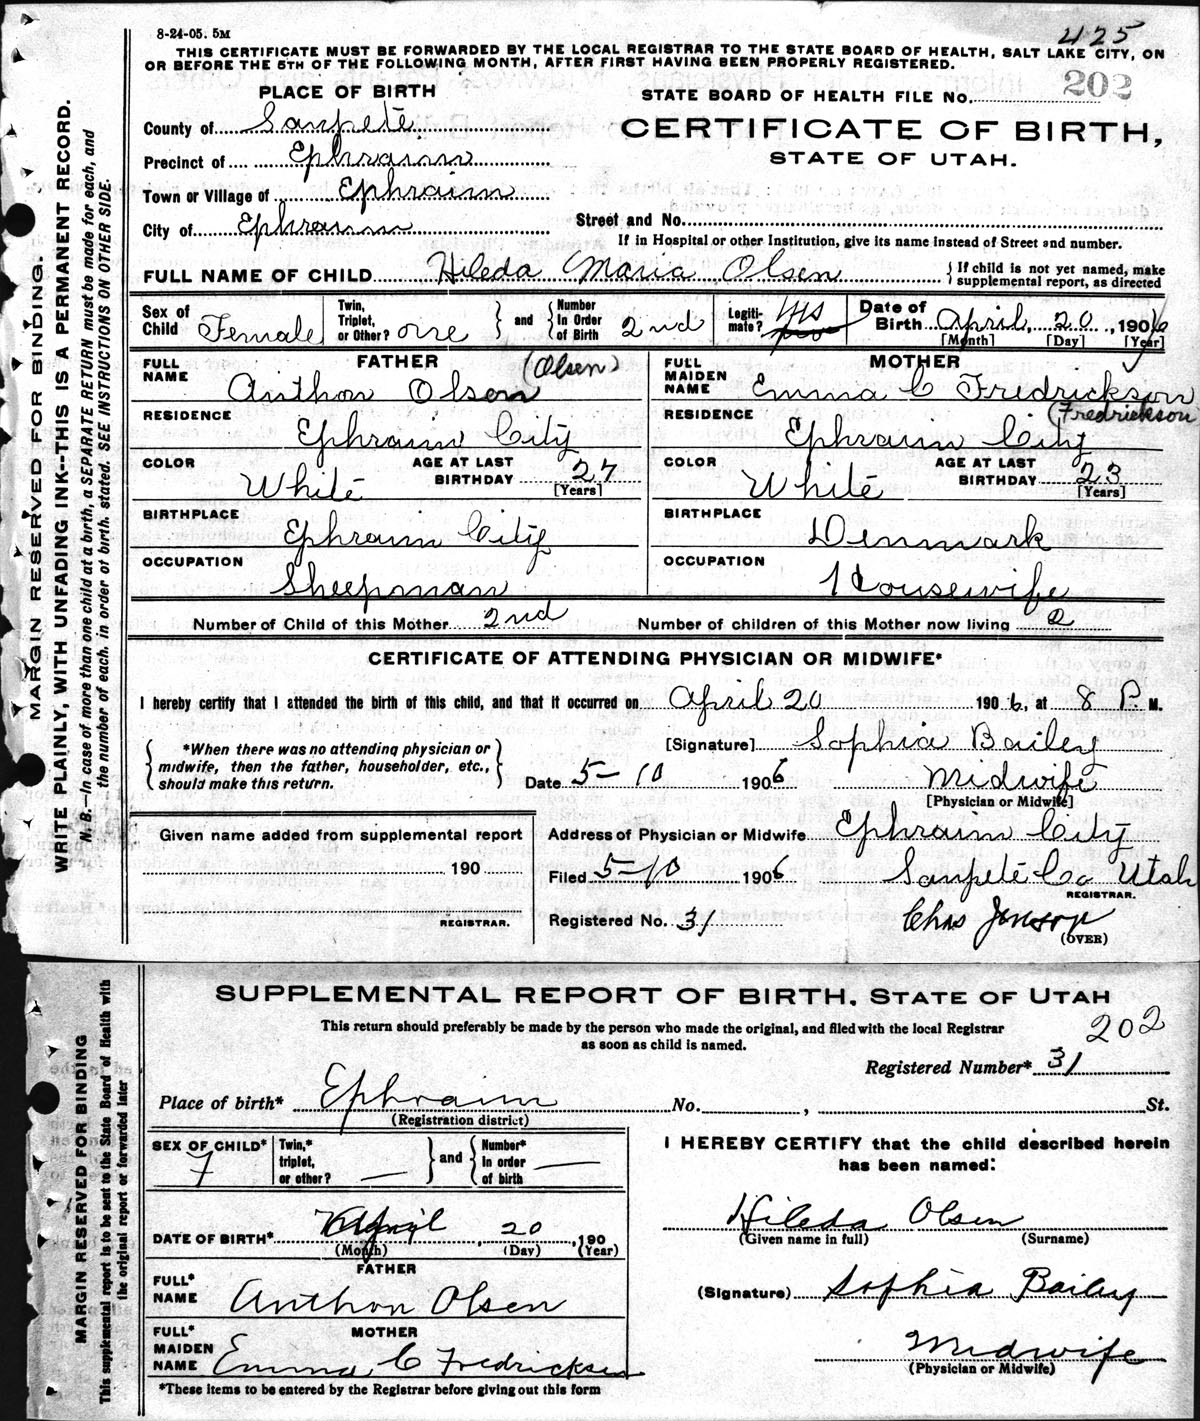 8-24-05. 5M
425
THIS CERTIFICATE MUST BE FORWARDED BY THE LOCAL REGISTRAR TO THE STATE BOARD OF HEALTH, SALT LAKE CITY, ON
OR BEFORE THE 5TH OF THE FOLLOWING MONTH, AFTER FIRST HAVING BEEN PROPERLY REGISTERED.
MARGIN RESERVED FOR BINDING.
WRITE PLAINLY, WITH UNFADING INK--THIS IS A PERMANENT RECORD.
N. B.—In case of more than one child at a birth, a SEPARATE RETURN must be made for each, and
the number of each, in order of birth, stated. SEE INSTRUCTIONS ON OTHER SIDE.
PLACE OF BIRTH
County of Sanpete
Precinct of Ephraim
Town or Village of Ephraim
City of Ephraim
STATE BOARD OF HEALTH FILE No. 202
CERTIFICATE OF BIRTH,
STATE OF UTAH.
Street and No.
If in Hospital or other Institution, give its name instead of Street and number.
FULL NAME OF CHILD Hileda Maria Olsen
If child is not yet named, make
supplemental report, as directed
Sex of Child Female
Twin, Triplet, or Other? one
and
Number In Order of Birth 2nd
Legiti-mate? yes
Date of Birth April, 20, 1906
[Month] [Day] [Year]
FATHER
FULL NAME Anthon Olsen (Olsen)
RESIDENCE Ephraim City
COLOR White
AGE AT LAST BIRTHDAY 27
[Years]
BIRTHPLACE Ephraim City
OCCUPATION Sheepman
MOTHER
FULL MAIDEN NAME Emma C Fredrickson
(Fredrickson
RESIDENCE Ephraim City
COLOR White
AGE AT LAST BIRTHDAY 23
[Years]
BIRTHPLACE Denmark
OCCUPATION Housewife
Number of Child of this Mother 2nd
Number of children of this Mother now living 2
CERTIFICATE OF ATTENDING PHYSICIAN OR MIDWIFE*
I hereby certify that I attended the birth of this child, and that it occurred on April 20 1906, at 8 P. M.
*When there was no attending physician or
midwife, then the father, householder, etc.,
should make this return.
[Signature] Sophia Bailey
Date 5-10 1906
Midwife
[Physician or Midwife]
Given name added from supplemental report
190
REGISTRAR.
Address of Physician or Midwife Ephraim City
Filed 5-10 1906
Sanpete Co Utah
REGISTRAR.
Registered No. 31
Chas Jenson
(OVER)
MARGIN RESERVED FOR BINDING
This supplemental report is to be sent to the State Board of Health with
the original report or forwarded later
SUPPLEMENTAL REPORT OF BIRTH, STATE OF UTAH
This return should preferably be made by the person who made the original, and filed with the local Registrar
as soon as child is named.
202
Registered Number* 31
Place of birth* Ephraim No. , St.
(Registration district)
SEX OF CHILD* F
Twin,* triplet, or other? —
and
Number* in order of birth —
DATE OF BIRTH* April, 20, 190
(Month) (Day) (Year)
FATHER
FULL* NAME Anthon Olsen
MOTHER
FULL* MAIDEN NAME Emma C Fredricksen
*These items to be entered by the Registrar before giving out this form
I HEREBY CERTIFY that the child described herein
has been named:
Hileda Olsen
(Given name in full) (Surname)
(Signature) Sophia Bailey
Midwife
(Physician or Midwife)